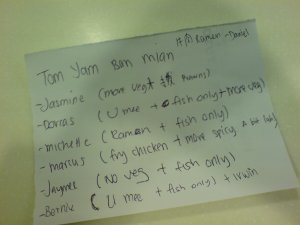 Ramen - Daniel
Tom Yam Ban mian
- Jasmine (more veg + Prawns)
- Dorras (U mee + fish only + more veg)
- michelle (Ramen + fish only)
- marcus (fry chicken + more spicy
- Jaymee (No veg + fish only)
- Bernie (U mee + fish only) + Irwin